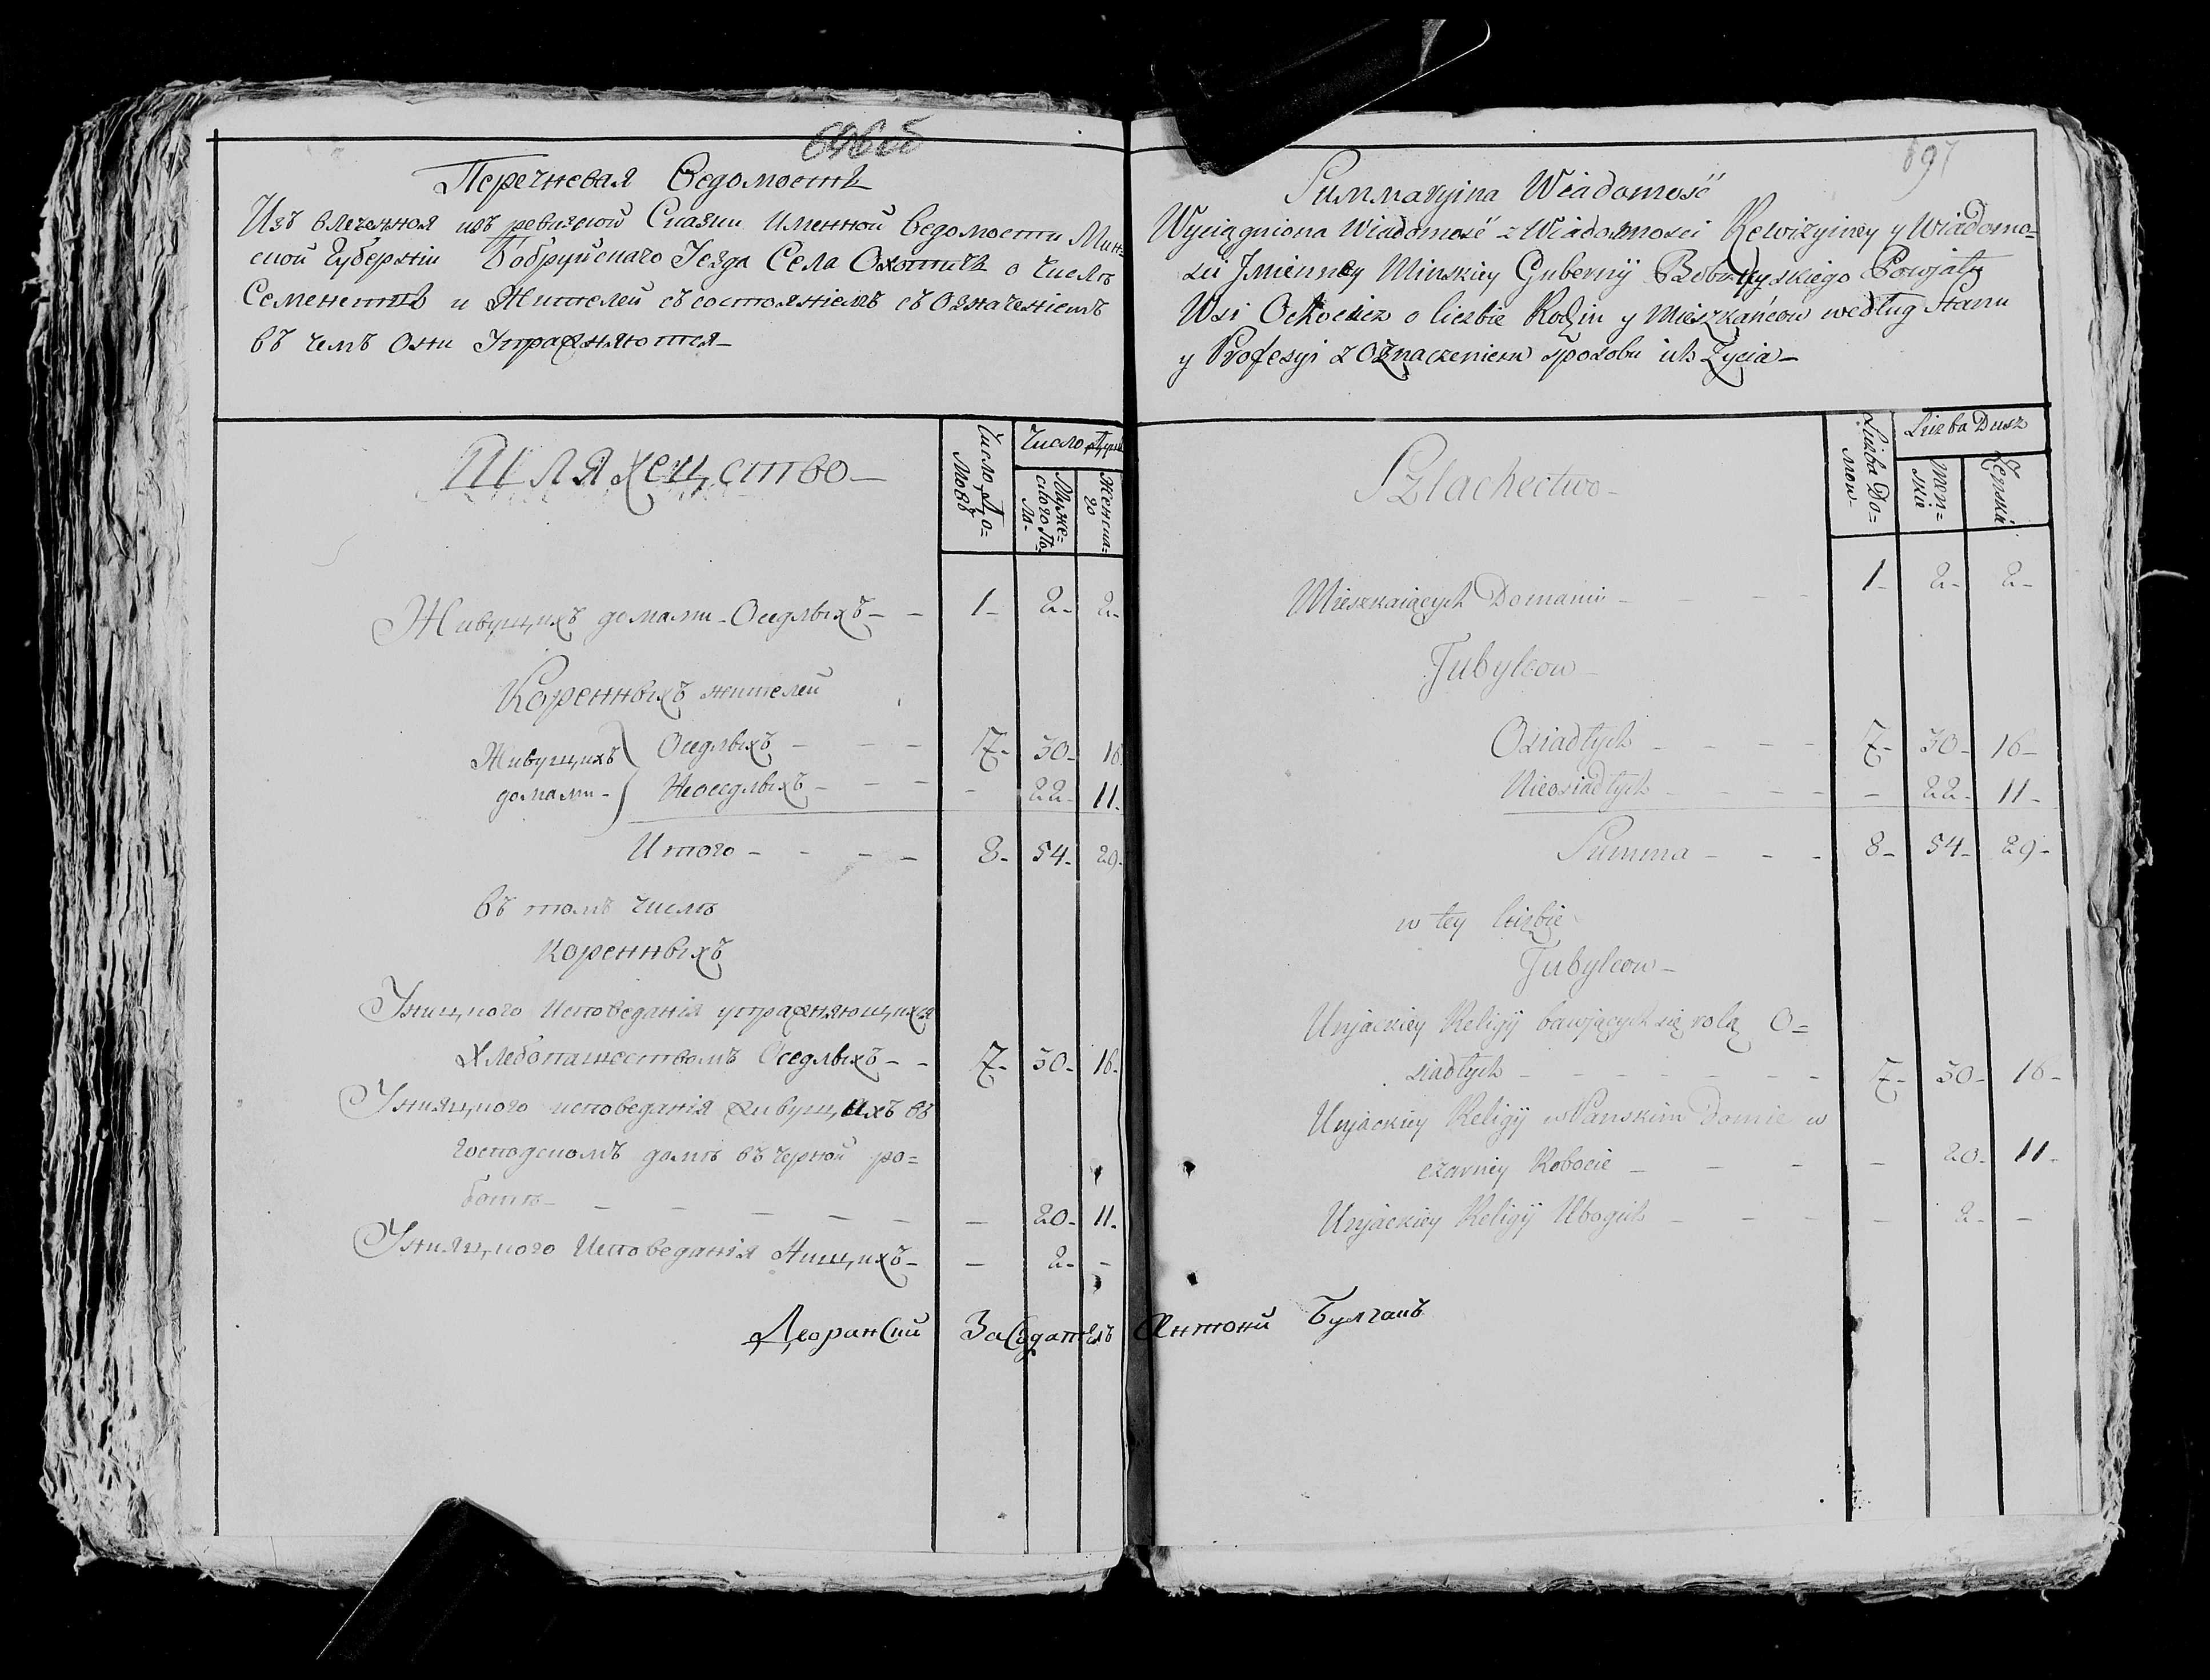 Перечневая Ведомость
Изъ влеченная изъ ревизской Сказки Именной Ведомости Мин=
ской Губерніи Бобруйскаго Уезда Села Охотичь о Числѣ
Семействъ и Жителей съ состояніемъ съ Означеніемъ
въ чемъ Они Упражняются
Шляхецство
Число До=
мовъ
Число Душъ
Муже=
ского По-
ла-
Женска-
го
Живущихъ домами Оседлыхъ - - 1- 2- 2-
Коренныхъ жителей
Живущихъ домами- } Оседлыхъ - - - 7- 30- 16
Неоседлыхъ - - - - 22- 11-
Итого - - - - 8- 54- 29-
въ томъ числѣ
коренныхъ
Уницкого Исповеданія упражняющихся
Хлебопашествомъ Оседлыхъ - - 7- 30- 16-
Унияцкого исповеданія живущихъ въ
господскомъ домѣ въ черной ро=
ботѣ - - - - - - - 20- 11-
Унияцкого Исповеданія Нищихъ - - 2- -
Дворанский Заседатель Антони Булгакъ
697
Summaryina Wiadomość
Wyciągniona Wiadomość z Wiadomosci Rewizyiney y Wiadomo=
sci Jmienney Minskiey Gubernij Bobruyskiego Powjatu
Wsi Ochocicz o liczbie Rodzin y Mieszkańcow według Stanu
y Profesyi z Oznaczeniem sposobu ich Życia -
Szlachectwo -
Liczba Do=
mow
Liczba Dusz
Męn=
skie
Żenskie
Mieszkaiących Domami - - - 1- 2- 2-
Tubylcow -
Osiadłych - - - - 7- 30- 16-
Nieosiadłych - - - - - 22- 11-
Summa - - - 8- 54- 29-
w tey liczbie
Tubylcow -
Unjackiey Religij bawjących się rolą O=
siadłych - - - - - - - 7- 30- 16-
Unjackiey Religij w Panskim Domie w
czarney Robocie - - - - - 20- 11-
Unjackiey Religij Ubogich - - - - 2- -